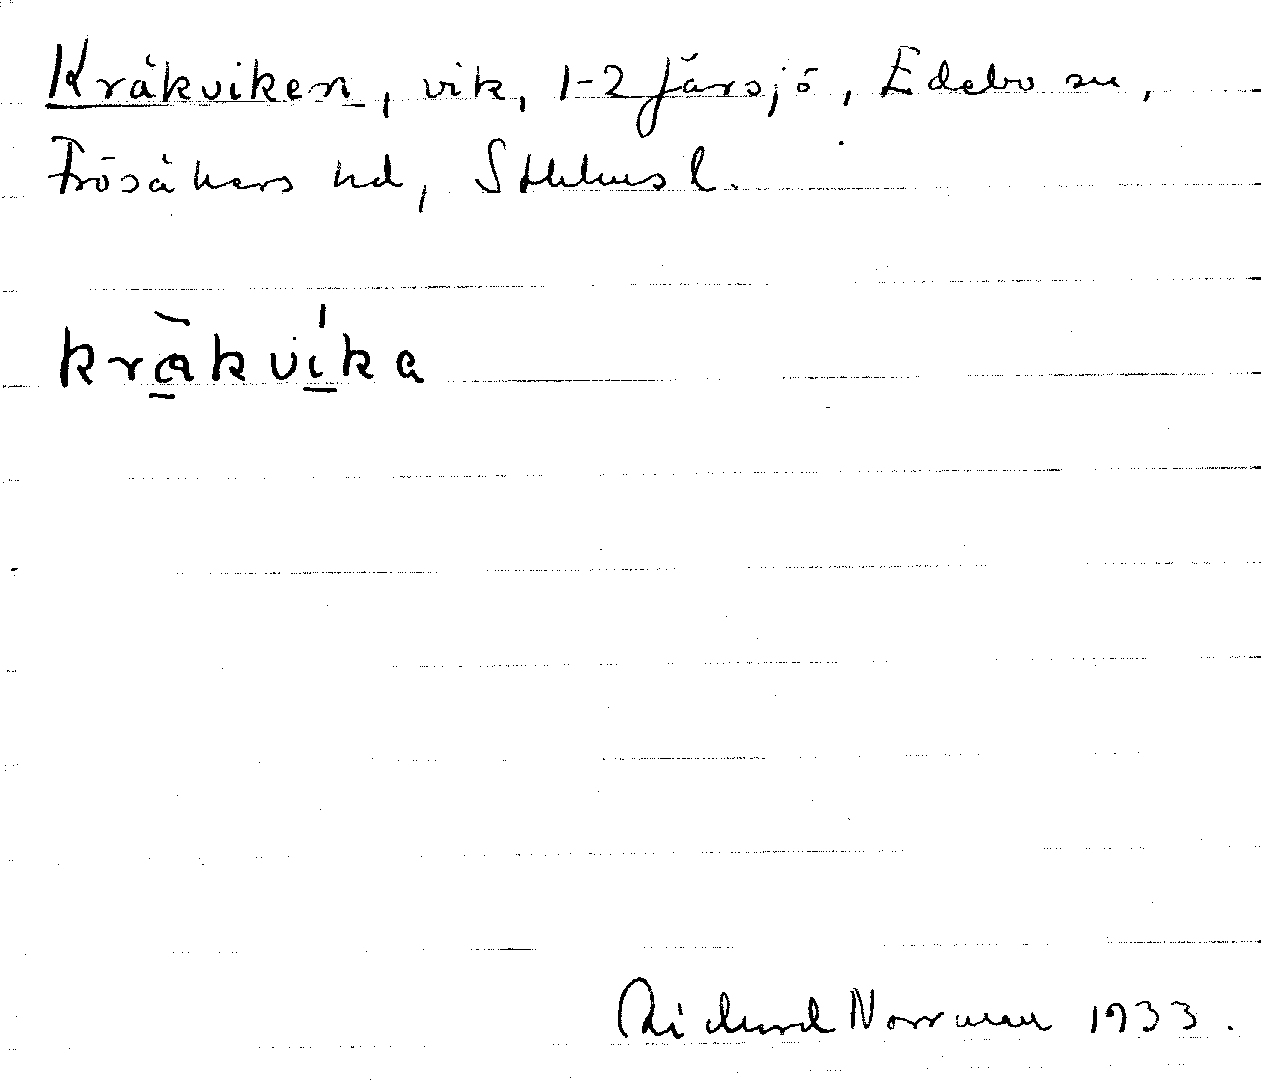 Kråkviken, vik, 1-2 Järsjö, Edebo sn,
Frösåkers hd, Sthlms l.
kràkvíka
Richard Norrman 1933.